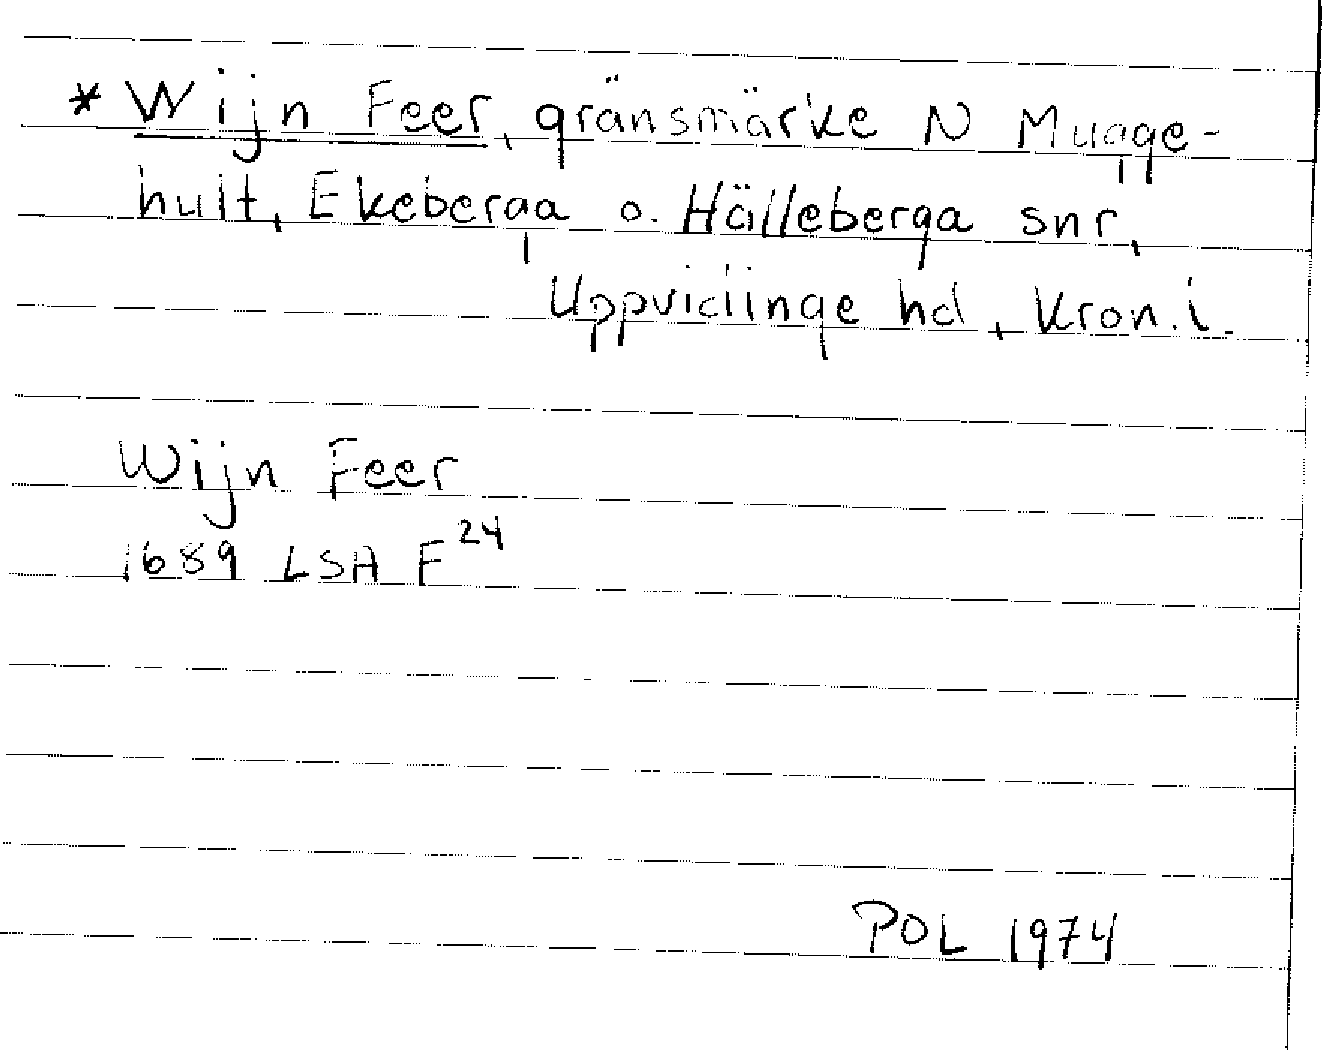 * Wijn Feer, gränsmärke N Mugge-
hult, Ekeberga o. Hälleberga snr,
Uppvidinge hd, Kron. l.
Wijn Feer
1689 LSA F 24
POL 1974